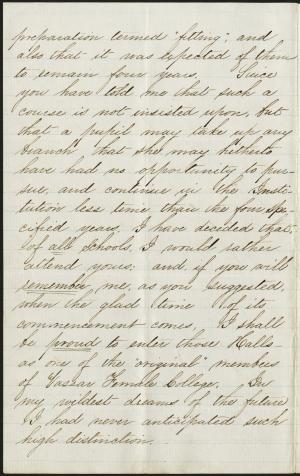 preparation termed "fitting"; and
also that it was expected of them
to remain four years. Since
you have told me that such a
course is not insisted upon, but
that a pupil may take up any
branch that she may hitherto
have had no opportunity to pur-
sue, and continue in the Insti-
tution less time than the four spe-
cified years, I have decided that,
of all schools, I would rather
attend yours: and if you will
remember me, as you suggested,
when the glad time of its
commencement comes, I shall
be proud to enter those Halls
as one of the "original" members
of Vassar Female College. In
my wildest dreams of the future
I had never anticipated such
high distinction.